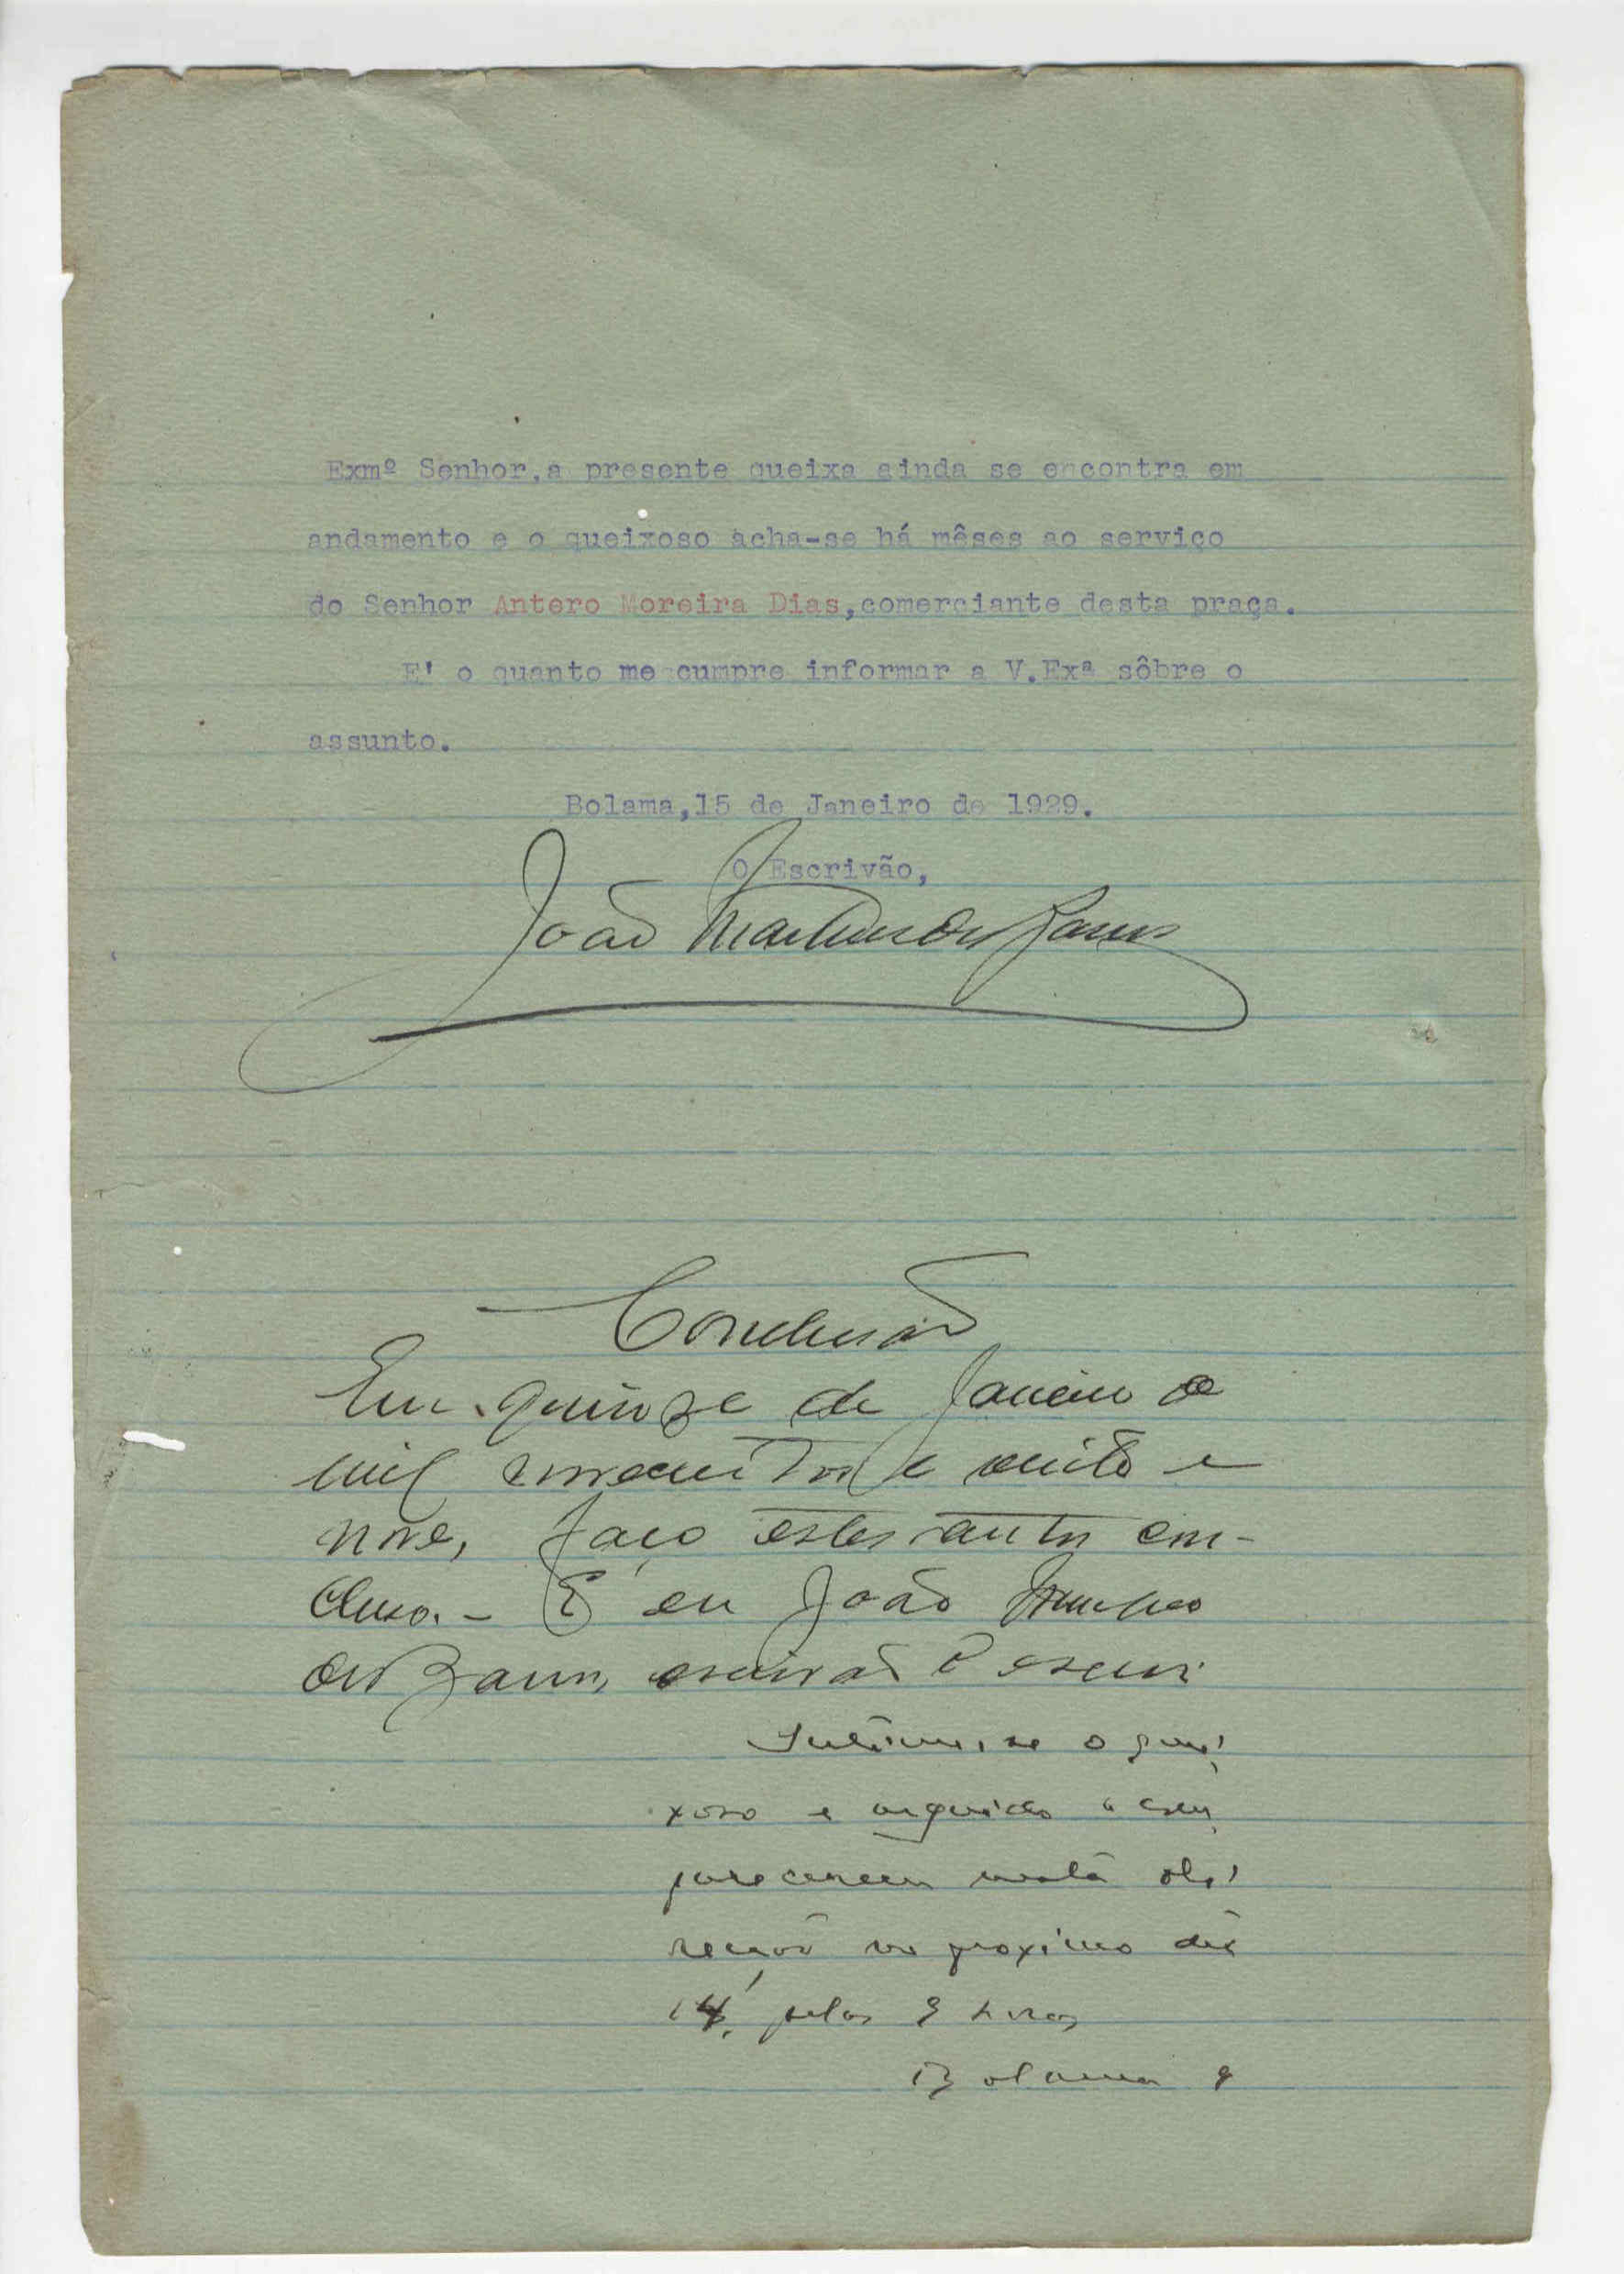 Exmº Senhor,a presente queixa ainda se encontra em
andamento e o queixoso acha-se há mêses ao serviço
do Senhor Antero Moreira Dias,comerciante desta praça.
E' o quanto me cumpre informar a V.Exª sôbre o
assunto.
Bolama,15 de Janeiro de 1929.
O Escrivão,
João Martins dos
Conclusão
Em quinze de Janeiro de
mil novecentos e vinte e
nove, faço estes autos con-
clusos. - E eu João
dos escrivão o escrevi
Intime-se o quei
xoso e arguido a com
parecerem nesta
no proximo dia
14, pelas 9 horas
Bolama 9